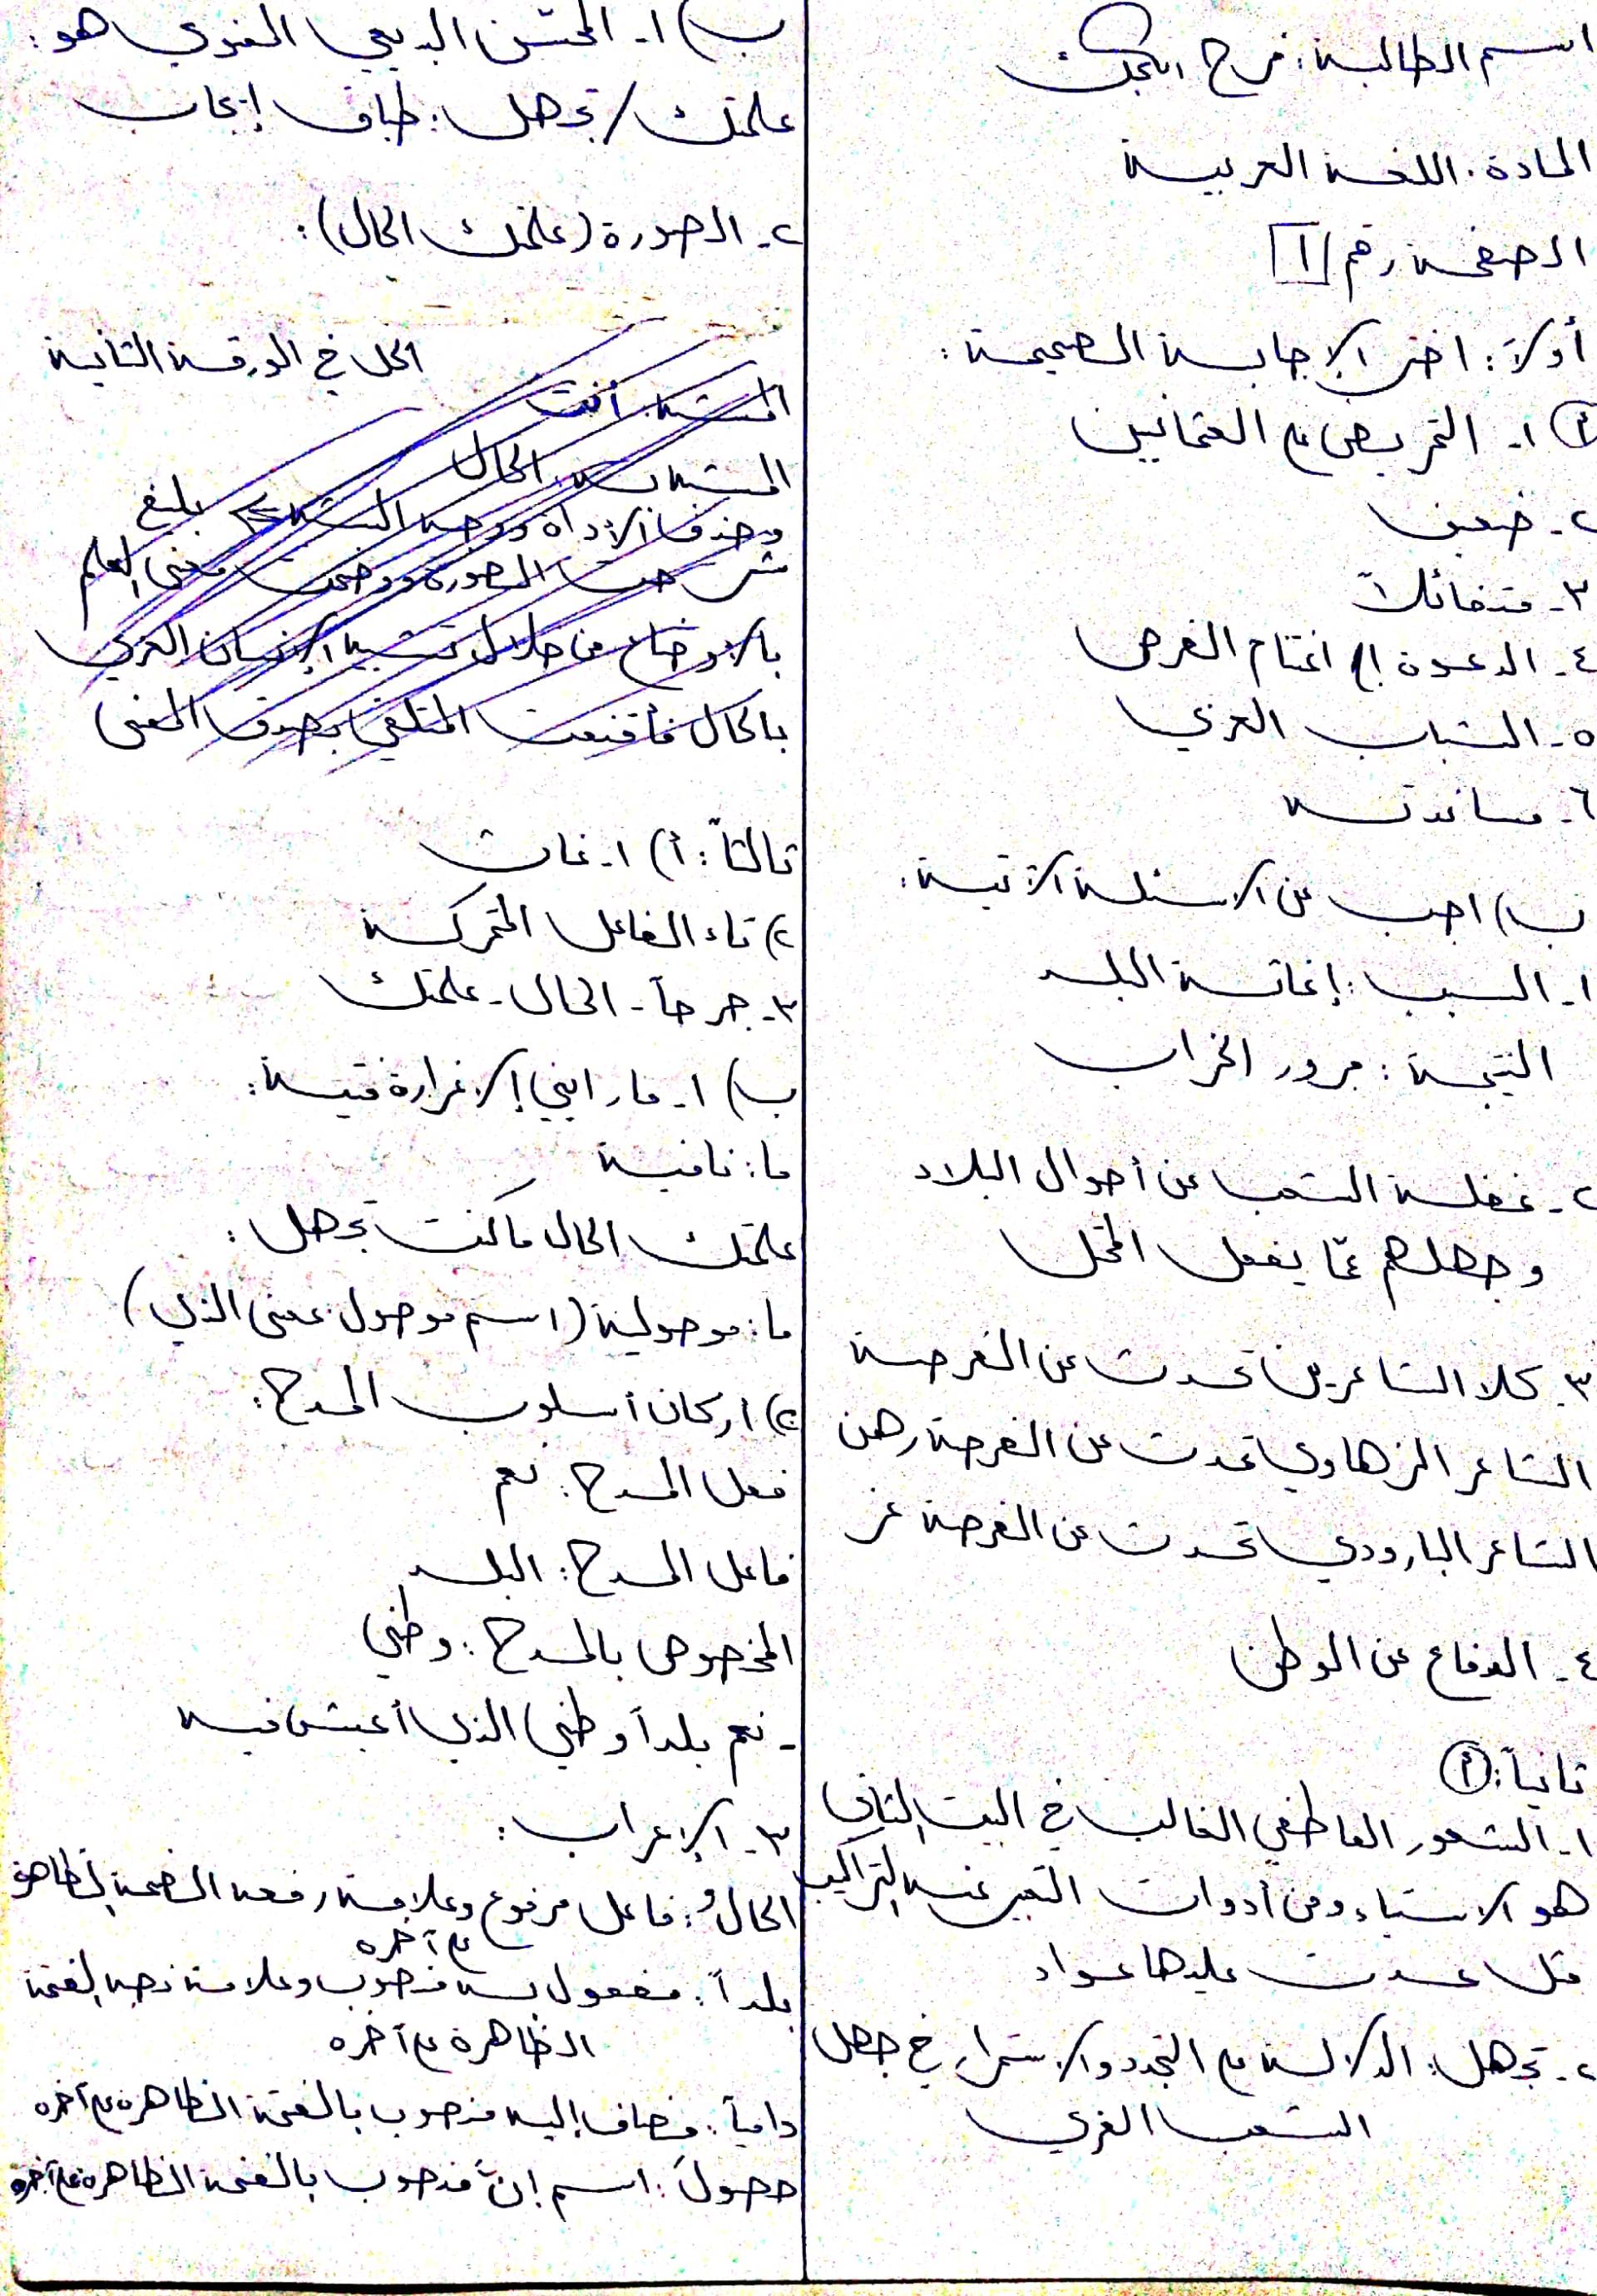 اسم الطالبة: فرح
المادة: اللغة العربية
الصفحة رقم [١]
أولاً: اختر الإجابة الصحيحة:
أ) ١- التحريض على العثمانيين
٢- ضعيف
٣- متفائلاً
٤- الدعوة إلى اغتنام الفرص
٥- الشباب العربي
٦- مساندته
ب) اجب عن الاسئلة الآتية:
١- السبب: إغاثة البلد
النتيجة: مرور الخراب
٢- غفلة الشعب عن أحوال البلاد
وجهلهم عمّا يفعل المحتل
٣- كلا الشاعرين تحدث عن الفرصة
الشاعر الزهاوي تحدث عن الفرصة رهن
الشاعر البارودي تحدث عن الفرصة عز
٤- الدفاع عن الوطن
ثانياً: أ)
١- الشعور العاطفي الغالب في البيت الثاني
هو الاستياء ومن أدوات التعبير عنه التراكيب
مثل عدت عليها عواد
٢- تجهل: الدلالة على التجدد والاستمرار في جهل
الشعب العربي
ب) ١- المحسّن البديعي المعنوي هو:
علمتك / تجهل: طباق إيجاب
٢- الصورة (علمتك الحال):
الحل في الورقة الثانية
المشبه: أنت
المشبه به: الحال
وحذف الأداة ووجه الشبه بليغ
شرحت الصورة ووضحت معنى العلم
بالأوضاع من خلال تشبيه الإنسان العربي
بالحال فأقنعت المتلقي بصدق المعنى
ثالثاً: أ) ١- غاث
٢) تاء الفاعل المتحركة
٣- جرحاً - الحال - علمتك
ب) ١- ما رابني إلا غرارة فتية:
ما: نافية
علمتك الحال ما كنت تجهل:
ما: موصولية (اسم موصول بمعنى الذي)
٢) اركان أسلوب المدح:
فعل المدح: نعم
فاعل المدح: البلد
المخصوص بالمدح: وطني
- نعم بلداً وطني الذي أعيش فيه
٣- الإعراب:
الحالُ: فاعل مرفوع وعلامة رفعه الضمة الظاهرة
على آخره
بلداً: مفعول به منصوب وعلامة نصبه الفتحة
الظاهرة على آخره
دامياً: مضاف إليه منصوب بالفتحة الظاهرة على آخره
حصولَ: اسم إنّ منصوب بالفتحة الظاهرة على آخره